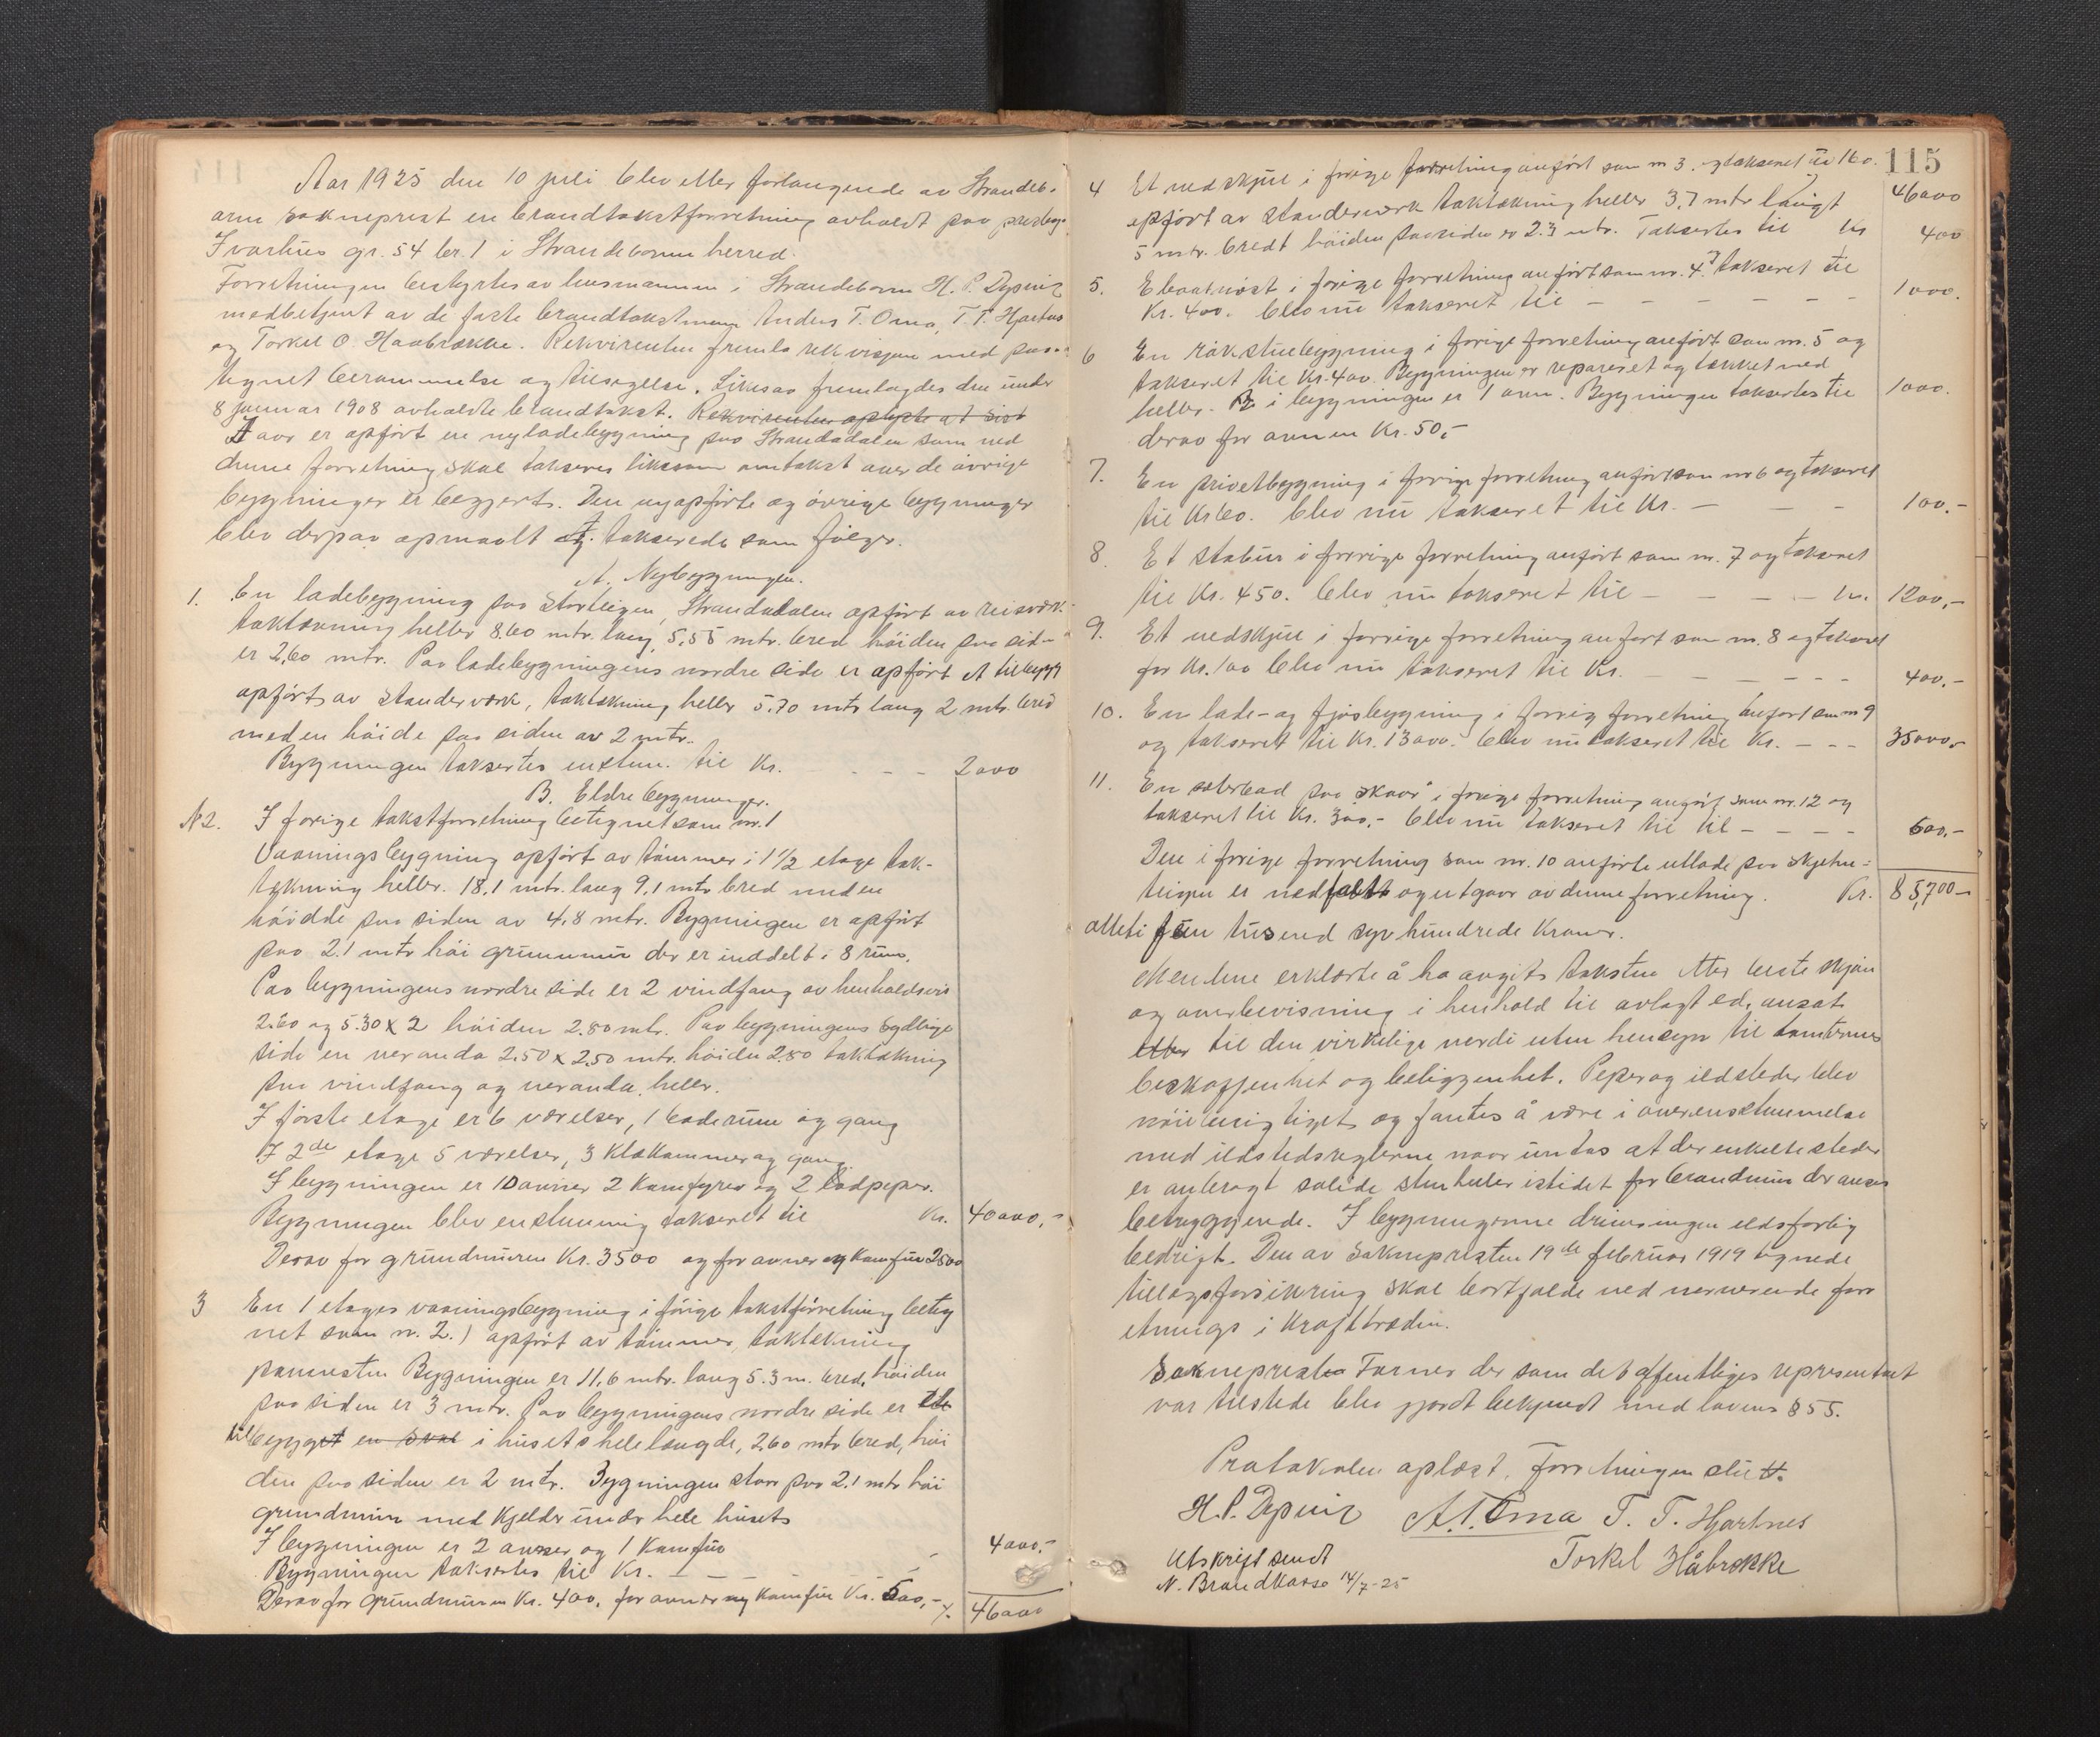 Aar 1925 den 10 juli blev efter forlangende av Strandeb.
arm sokneprest en brandtakstforretning avholdt paa prestegj.
Ivarhus gr. 54 br. 1 i Strandebarm herred.
Forretningen bestyrtes av lensmannen i Strandebarm H. P. Dysvik
medbetjent av de faste brandtakstmenn Anders T. Oma, T. T. Hjartnes
og Torkel O. Haabrække. Rekvirenten fremla rekvisisjon med paa-
tegnet berammelse og tilsigelse. Likesaa fremlagdes den under
8 januar 1908 avholdte brandtakst. Rekvirenten oplyste at sist
I aar er opført en ny ladebygning paa Strandadalen som ved
denne forretning skal takseres likesom omtakst over de øvrige
bygninger er begjært. Den nyopførte og øvrige bygninger
blev derpaa opmaalt og takserede som følger.
A. Nybygningen.
1. En ladebygning paa Storteigen, Strandadalen opført av reisverk
taktækning heller 8.60 mtr. lang, 5,55 mtr. bred høiden paa sid-
er 2,60 mtr. Paa ladebygningens nordre side er opført et tilbygg
opført av standerværk, taktækning heller 5.70 mtr lang 2 mtr. bred
med en høide paa siden av 2 mtr.
Bygningen taksertes enstem. til Kr. - - - 2000
B. Eldre bygninger.
N 2. I forige takstforretning betegnet som nr. 1
Vaaningsbygning opført av tømmer i 1 1/2 etage tak-
tækning heller. 18,1 mtr. lang 9,1 mtr bred med en
høidde paa siden av 4,8 mtr. Bygningen er opført
paa 2.1 mtr høi grunmur der er inddelt i 8 rum.
Paa bygningens nordre side er 2 vindfang av henholdsvis
2.60 og 5.30 x 2 høiden 2.80 mtr. Paa bygningens sydlige
side en veranda 2.50 x 2,50 mtr. høiden 2.80 taktækning
paa vindfang og veranda heller.
I første etage er 6 værelser, 1 baderum og gang
I 2de etage 5 værelser, 3 klækammer og gang
I bygningen er 10 ovner 2 kamfyrer og 2 lodpeper.
Bygningen blev enstemmig takseret til Kr. 40000,-
Derav for grundmuren Kr. 3500 og for ovner og kamfur 2500
3 En 1 etages vaaningsbygning i forige takstforretning beteg
net som nr. 2.) opført av tømmer, taktækning
pannesten Bygningen er 11,6 mtr. lang 5.3 m. bred, høiden
paa siden er 3 mtr. Paa bygningens nordre side er
tilbygget en sval i husets hele længde, 2,60 mtr bred, høi
den paa siden er 2 mtr. Bygningen staar paa 2.1 mtr høi
grundmur med kjelder under hele husets
I bygningen er 2 ovner og 1 Kamfur
Bygningen taksertes til Kr. - - - 4000,-
Derav for grundmuren Kr. 400, for ovner og kamfur Kr. 500,- 46000
115
4 Et vedskjul i forige forretning anført som nr 3. og takseret til 160. 46000
opført av standerverk taktækning heller 3,7 mtr langt
5 mtr. bredt høiden paa siden er 2.3 mtr. Taksertes til Kr 400
5. Et baatnøst i forige forretning anført som nr. 4, takseret til
Kr. 400. blev nu takseret til - - - - - - 1000.
6 En røkstuebygning i forige forretning anført som nr. 5 og
takseret til Kr. 400. Bygningen er reparert og tækket med
heller. I bygningen er 1 ovn. Bygningen taksertes til 1000.
derav for ovnen Kr. 50,-
7. En privetbygning i forige forretning anført som nr 6 og takseret
til Kr 60. blev nu takseret til Kr. - - - 100.-
8. Et stabur i forrige forretning anført som nr. 7 og takseret
til Kr. 450. blev nu takseret til - - - - kr. 1200,-
9. Et vedskjul i forrige forretning anført som nr. 8 og takseret
for Kr. 100 blev nu takseret til Kr. - - - - - 400.-
10. En lade- og fjøsbygning i forrig forretning anført som nr 9
og takseret til Kr. 13000. blev nu takseret til Kr. - - - 35000,-
11. En sæterbod paa "Skaar" i forige forretning anført som nr. 12 og
takseret til Kr. 300,- blev nu takseret til til - - - - 600,-
Den i forige forretning som nr. 10 anførte utlade paa
teigen er nedfalt og utgaar av denne forretning. Kr. 85,700-
otteti fem tusend syv hundrede Kroner.
Mennene erklærte å ha avgit taksten etter beste skjøn
og overbevisning i henhold til avlagt ed, ansat
etter til den virkelige verdi uten hensyn til tomternes
beskaffenhet og beliggenhet. Peper og ildsteder blev
nøie besigtiget og fantes å være i overensstemmelse
med ildstedsreglerne naar undtas at der enkelte steder
er anbragt solide stenheller istedet for brandmur der anses
betryggende. I bygningerne drives ingen ildsfarlig
bedrift. Den av Soknepresten 19de februar 1919 tegnede
tillægsforsikring skal bortfalde ved nærværende forr
etnings i krafttræden.
Soknepresten Farner der som det offentliges representant
var tilstede blev gjordt bekjendt med lovens § 55.
Protokolen oplæst. Forretningen slutt.
H. P. Dysvik A. T. Oma T. T. Hjartnes
Torkel Håbrekke
Utskrift sendt
N. Brandkasse 14/7-25